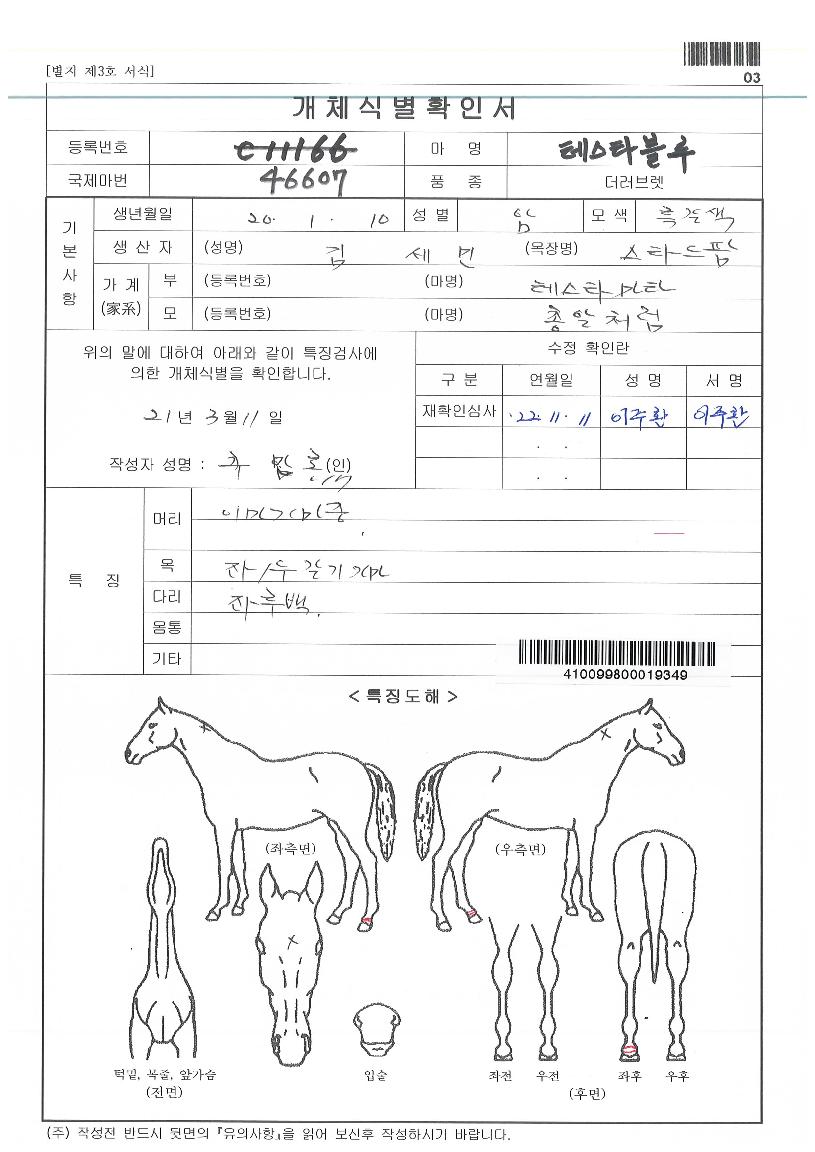 [별지 제3호 서식]
03
개체식별확인서
등록번호 C11166 마 명 테스타블루
국제마번 46607 품 종 더러브렛
기본사항
생년월일 20. 1. 10 성별 암 모색 흑갈색
생산자 (성명) 김세민 (목장명) 스타드팜
가계(家系) 부 (등록번호) (마명) 테스타마타
모 (등록번호) (마명) 총알처럼
위의 말에 대하여 아래와 같이 특징검사에
의한 개체식별을 확인합니다.
21년 3월 11일
작성자 성명 : (인)
수정 확인란
구 분 연월일 성 명 서 명
재확인심사 22. 11. 11 이주환 이주환
특 징
머리 이마가마중
목 좌/우 갈기가마
다리 좌후백.
몸통
기타
410099800019349
< 특징도해 >
(좌측면) (우측면)
턱밑, 목줄, 앞가슴
(전면)
입술
좌전 우전 좌후 우후
(후면)
(주) 작성전 반드시 뒷면의 『유의사항』을 읽어 보신후 작성하시기 바랍니다.